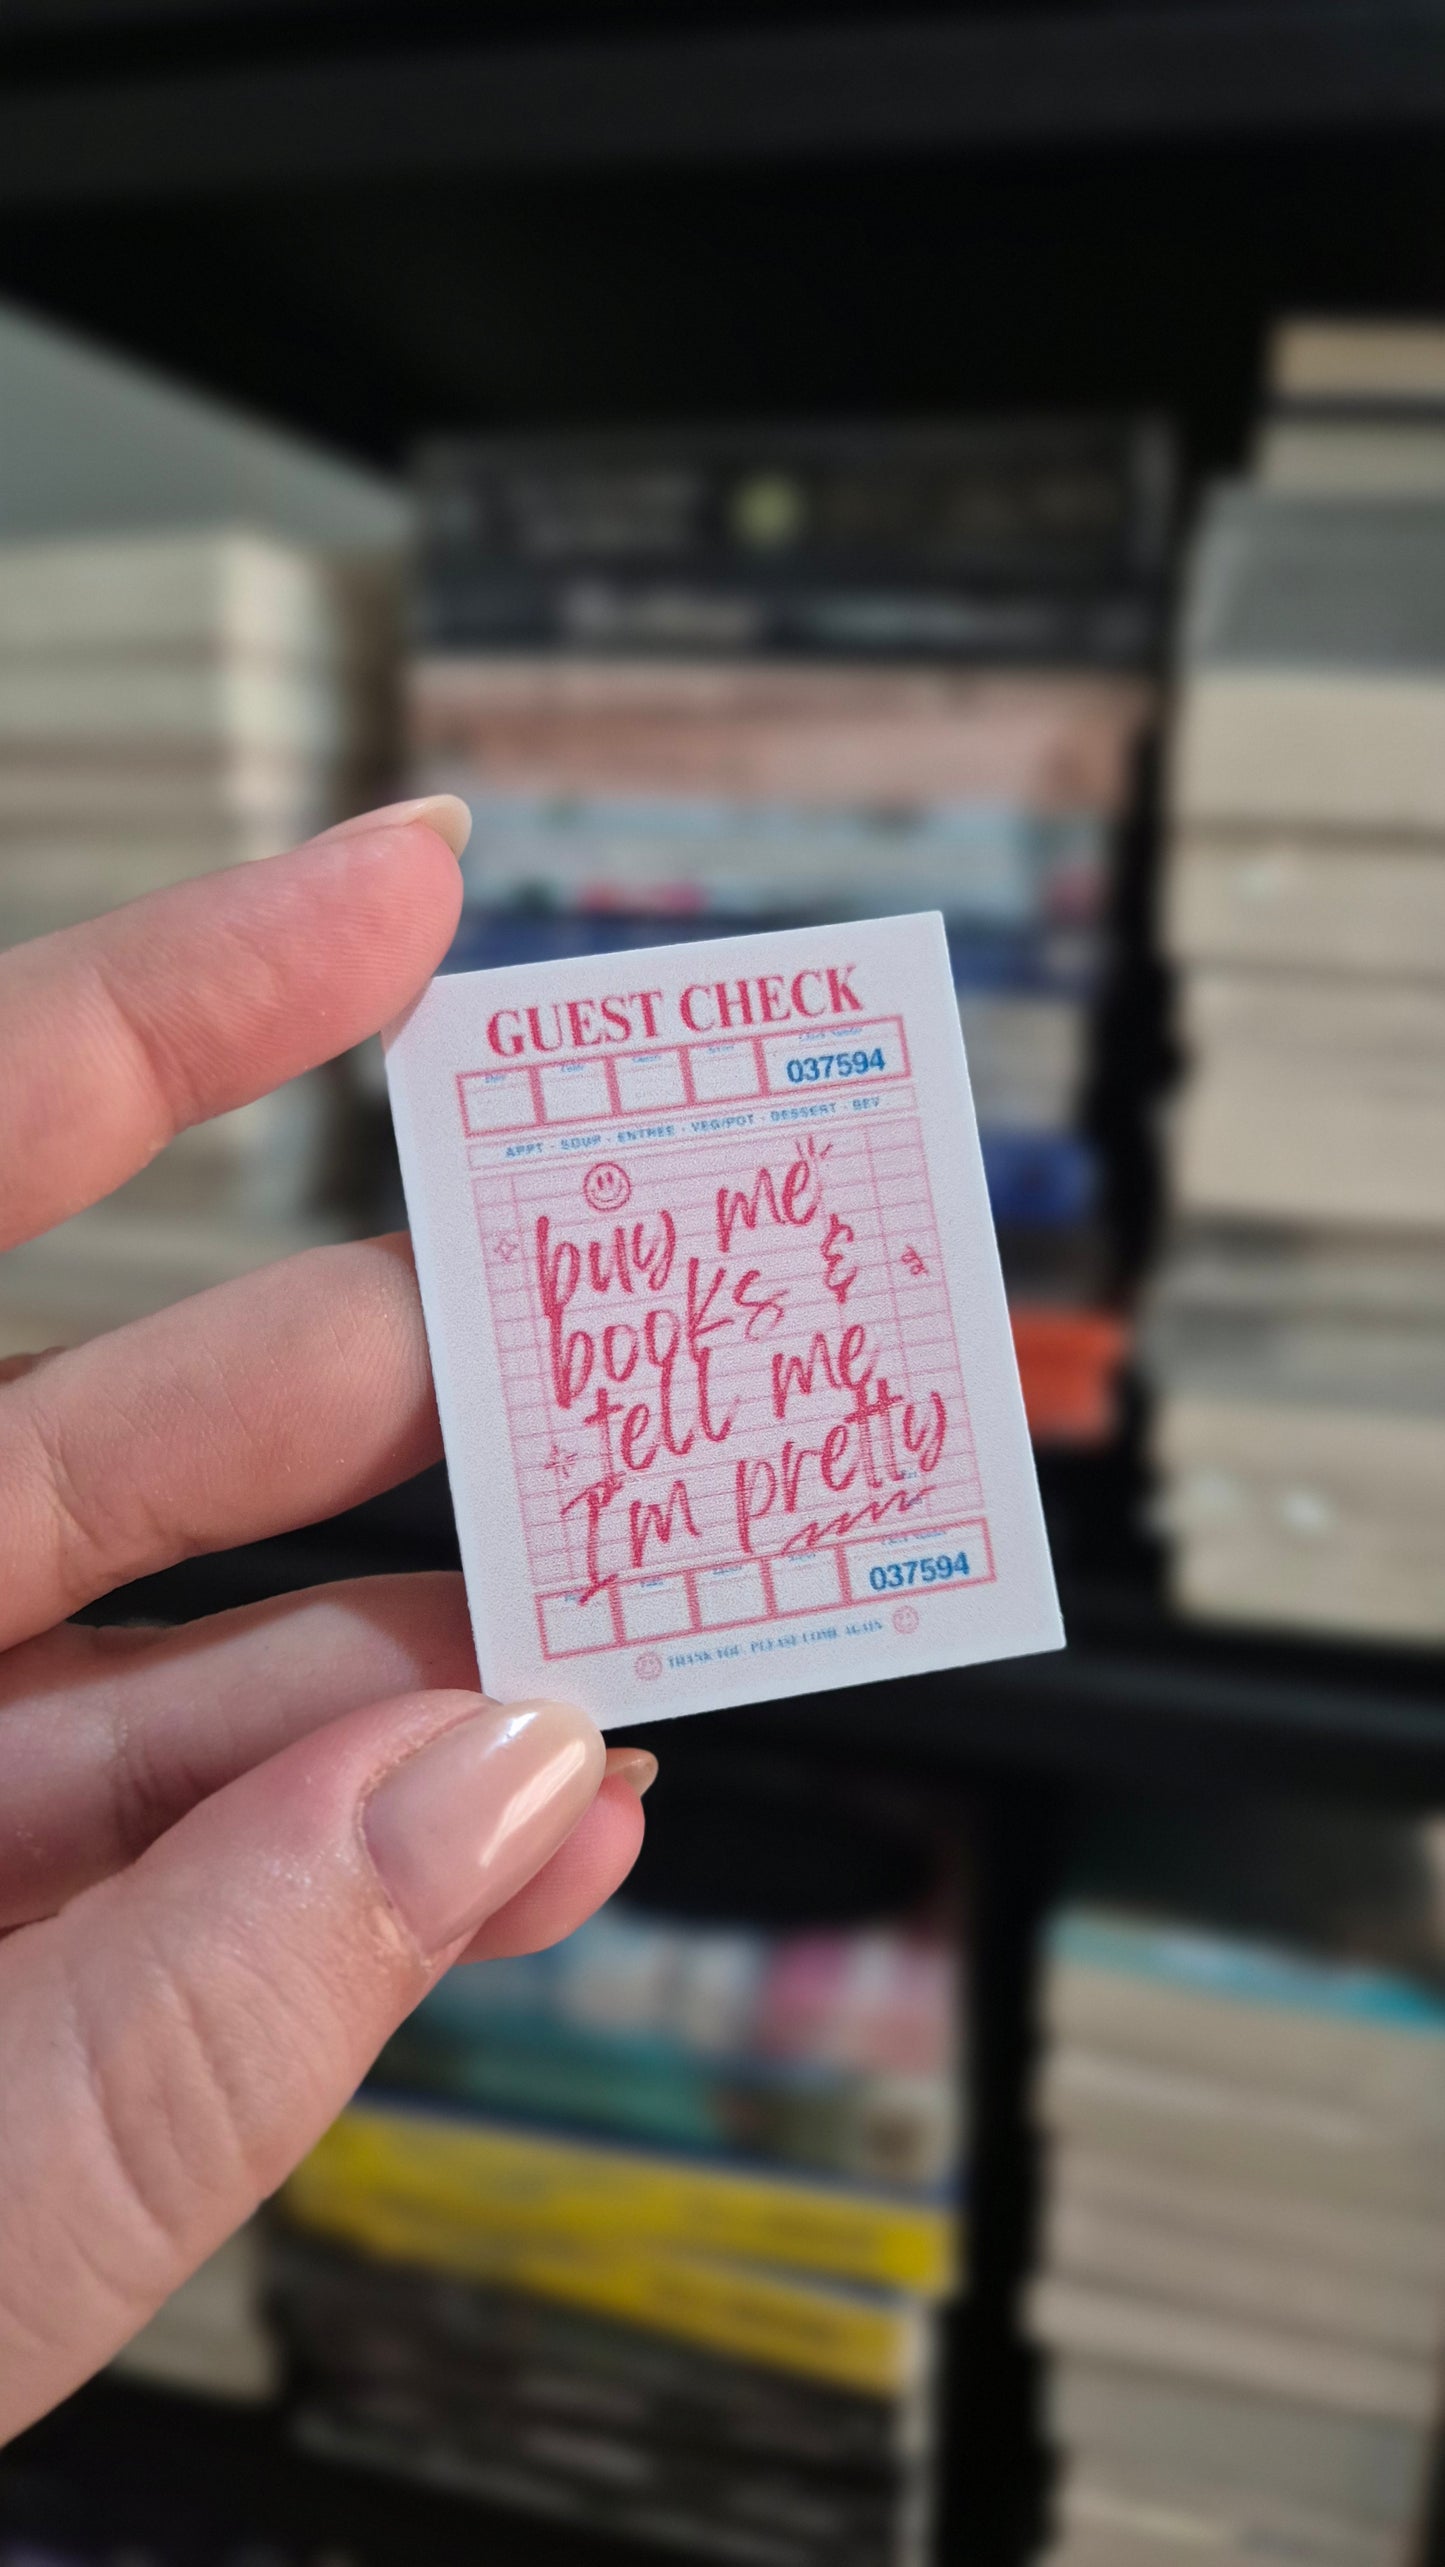 GUEST CHECK
037594
APPT - SOUP - ENTREE - VEG/POT - DESSERT - BEV
buy me
books &
tell me
I'm pretty
037594
THANK YOU, PLEASE COME AGAIN